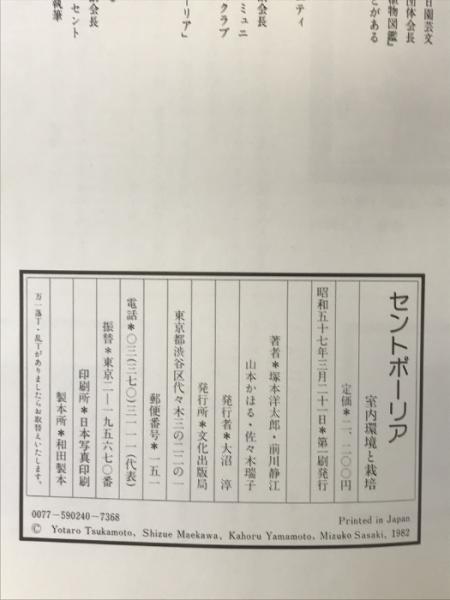 日園芸文
団体会長
植物図鑑』
とがある
ティ
会長
ミュニ
クラブ
ーリア」
会長
セント
執筆
セントポーリア
室内環境と栽培
定価＊二、二〇〇円
昭和五十七年三月二十一日＊第一刷発行
著者＊塚本洋太郎・前川静江
山本かほる・佐々木瑞子
発行者＊大沼 淳
発行所＊文化出版局
東京都渋谷区代々木三の二二の一
郵便番号＊一五一
電話＊〇三(三七〇)三一一一(代表)
振替＊東京二―一九五六七〇番
印刷所＊日本写真印刷
製本所＊和田製本
万一落丁・乱丁がありましたらお取替えいたします。
0077-590240-7368
Printed in Japan
© Yotaro Tsukamoto, Shizue Maekawa, Kahoru Yamamoto, Mizuko Sasaki, 1982